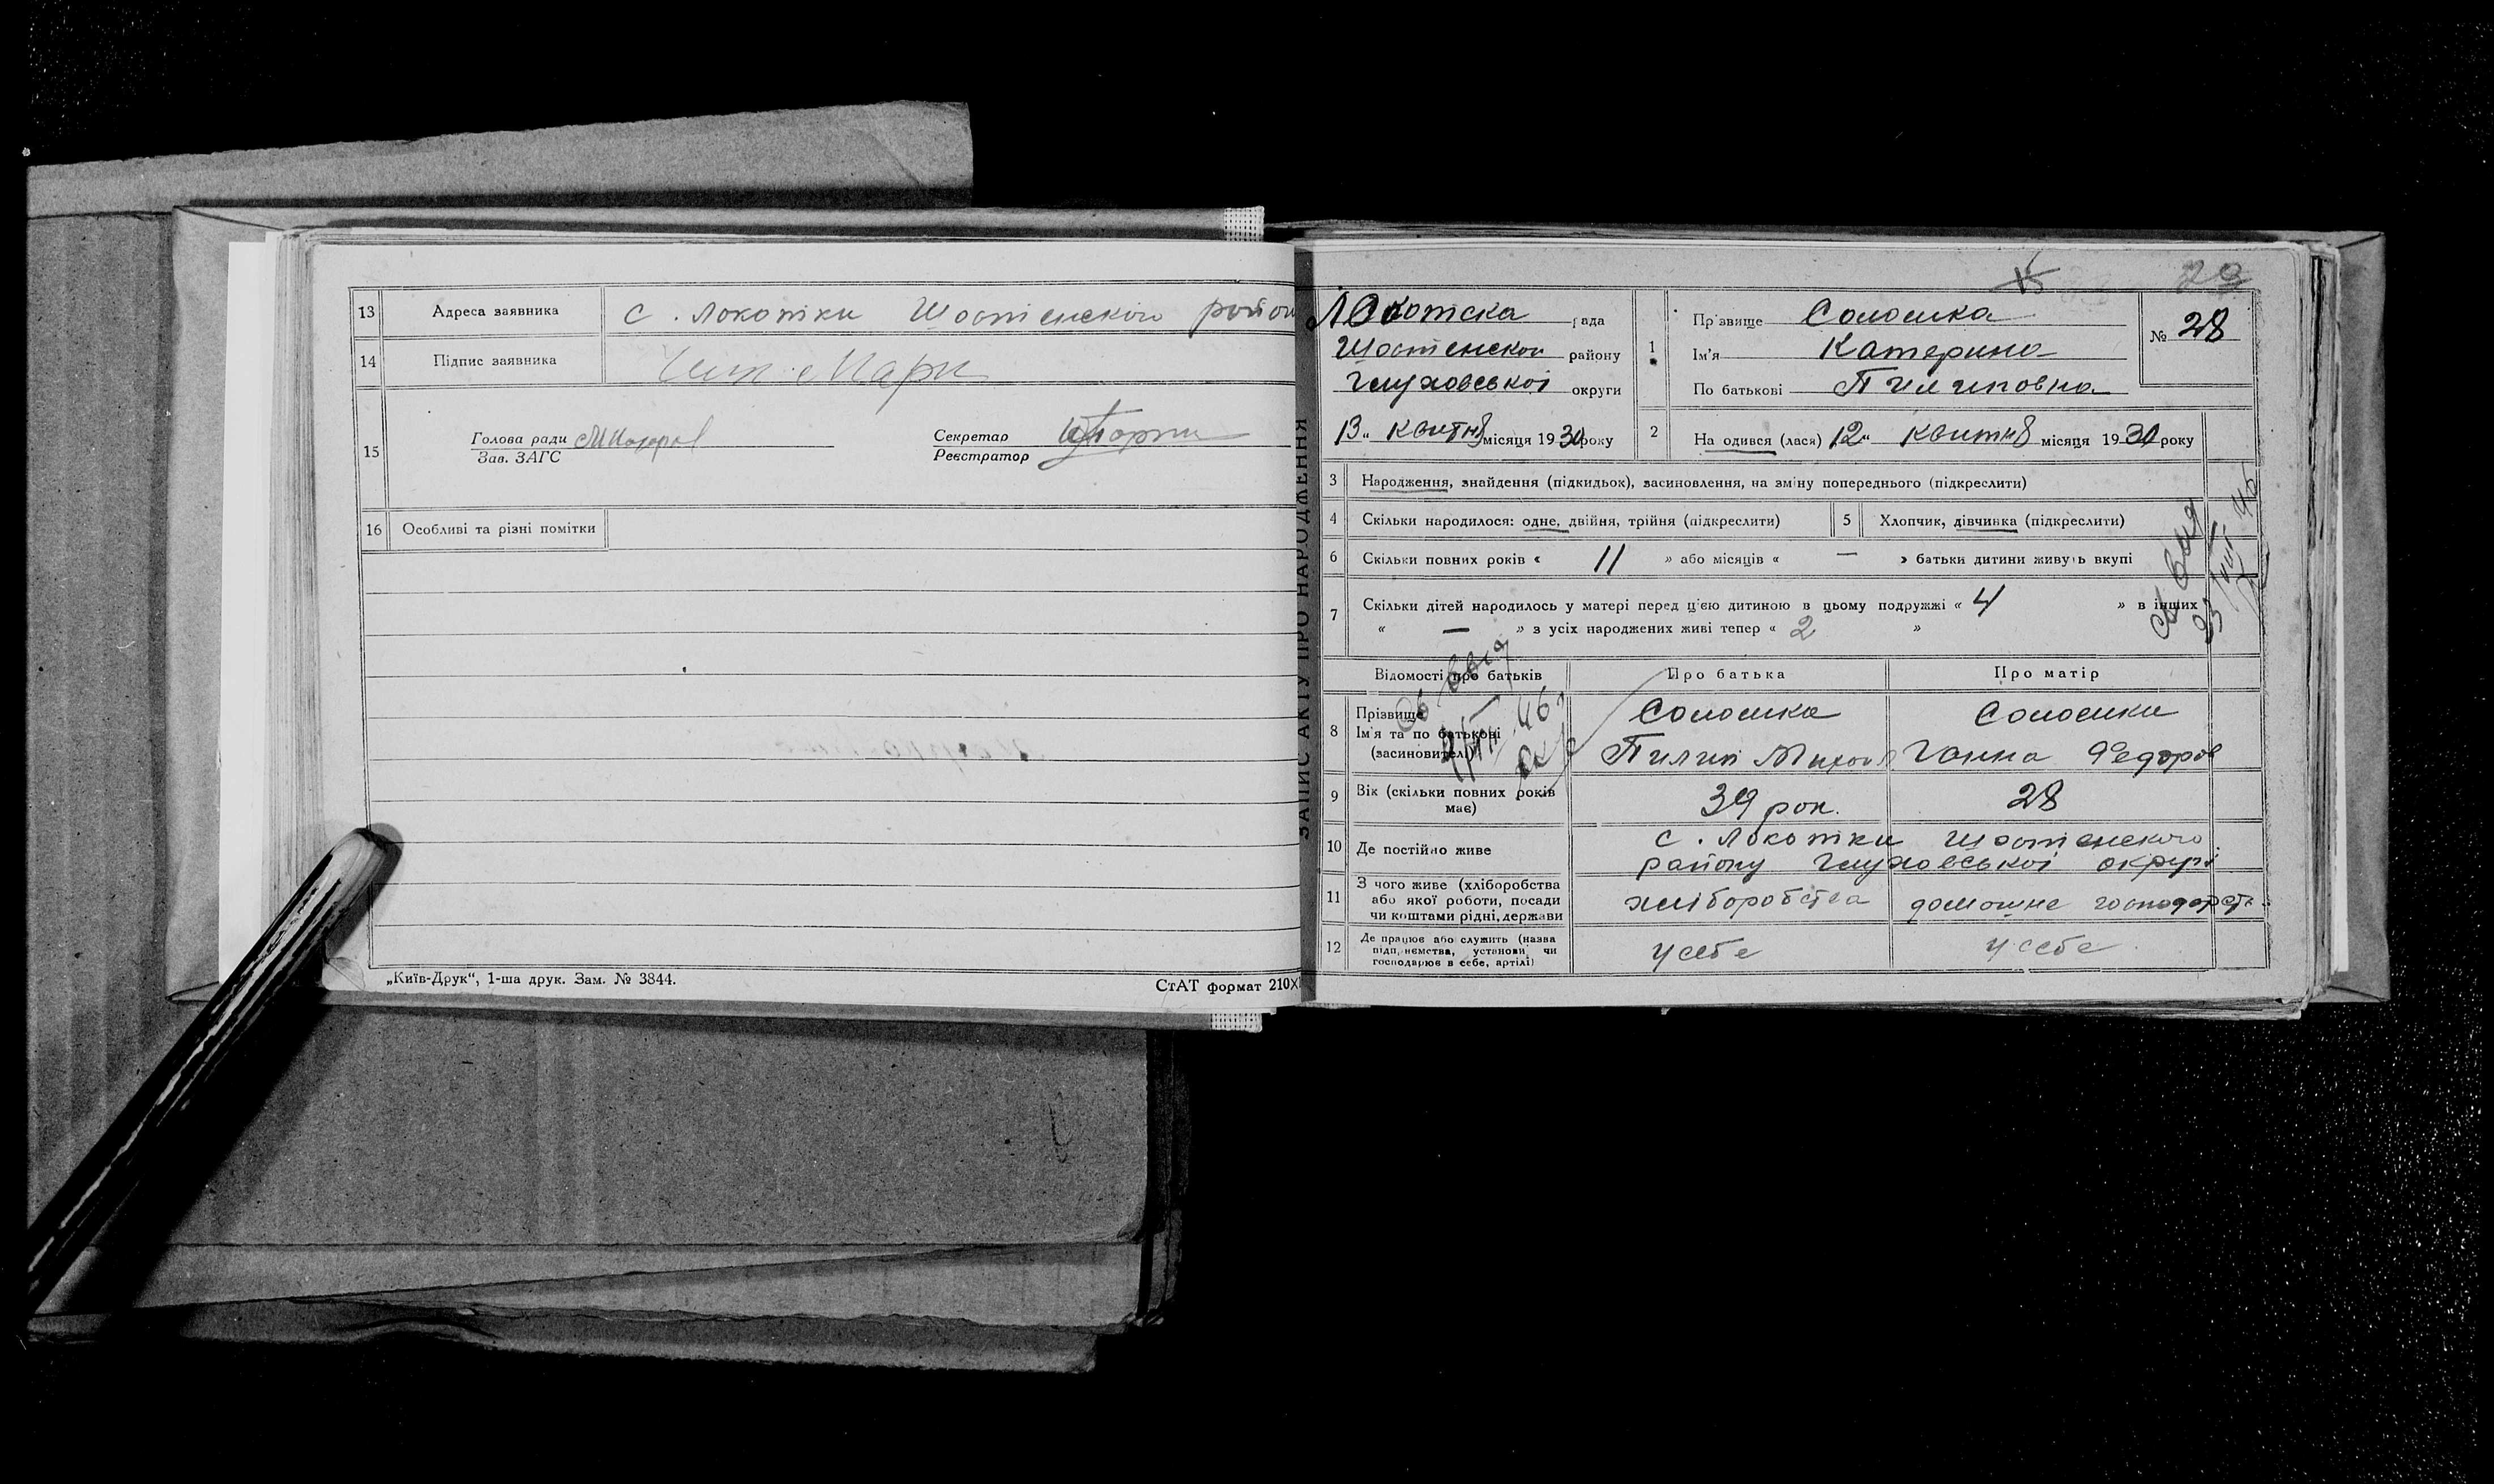 13 Адреса заявника с. Локотки Шостенского район
14 Підпис заявника
15 Голова ради Секретар
Зав. ЗАГС Реєстратор
16 Особливі та різні помітки
„Київ-Друк“, 1-ша друк. Зам. № 3844. СтАТ формат 210X
ЗАПИС АКТУ ПРО НАРОДЖЕННЯ
29
Локотска рада
Шостенскои району
Глуховської округи
13 „ квитня місяця 1930 року
1 Прізвище Соломка
Ім'я Катерина
По батькові Пилиповна
№ 28
2 На одився (лася) 12 “ квитня місяця 1930 року
3 Народження, знайдення (підкидьок), засиновлення, на зміну попереднього (підкреслити)
4 Скільки народилося: одне, двійня, трійня (підкреслити) 5 Хлопчик, дівчинка (підкреслити)
6 Скільки повних років « 11 » або місяців « — » батьки дитини живуть вкупі
7 Скільки дітей народилось у матері перед ц'єю дитиною в цьому подружжі « 4 » в інших
« — » з усіх народжених живі тепер « 2 »
Відомості про батьків Про батька Про матір
8 Прізвище Соломка Соломки
Ім'я та по батькові Пилип Михайл Ганна Федоров
(засиновителі)
9 Вік (скільки повних років має) 39 рок. 28
10 Де постійно живе с. Локотки Шостенского
району Глуховської округи
11 З чого живе (хліборобства хліборобства домошне господарств
або якої роботи, посади
чи коштами рідні, держави
12 Де працює або служить (назва у себе у себе
підпрнємства, установи, чи
господарює в себе, артілі)